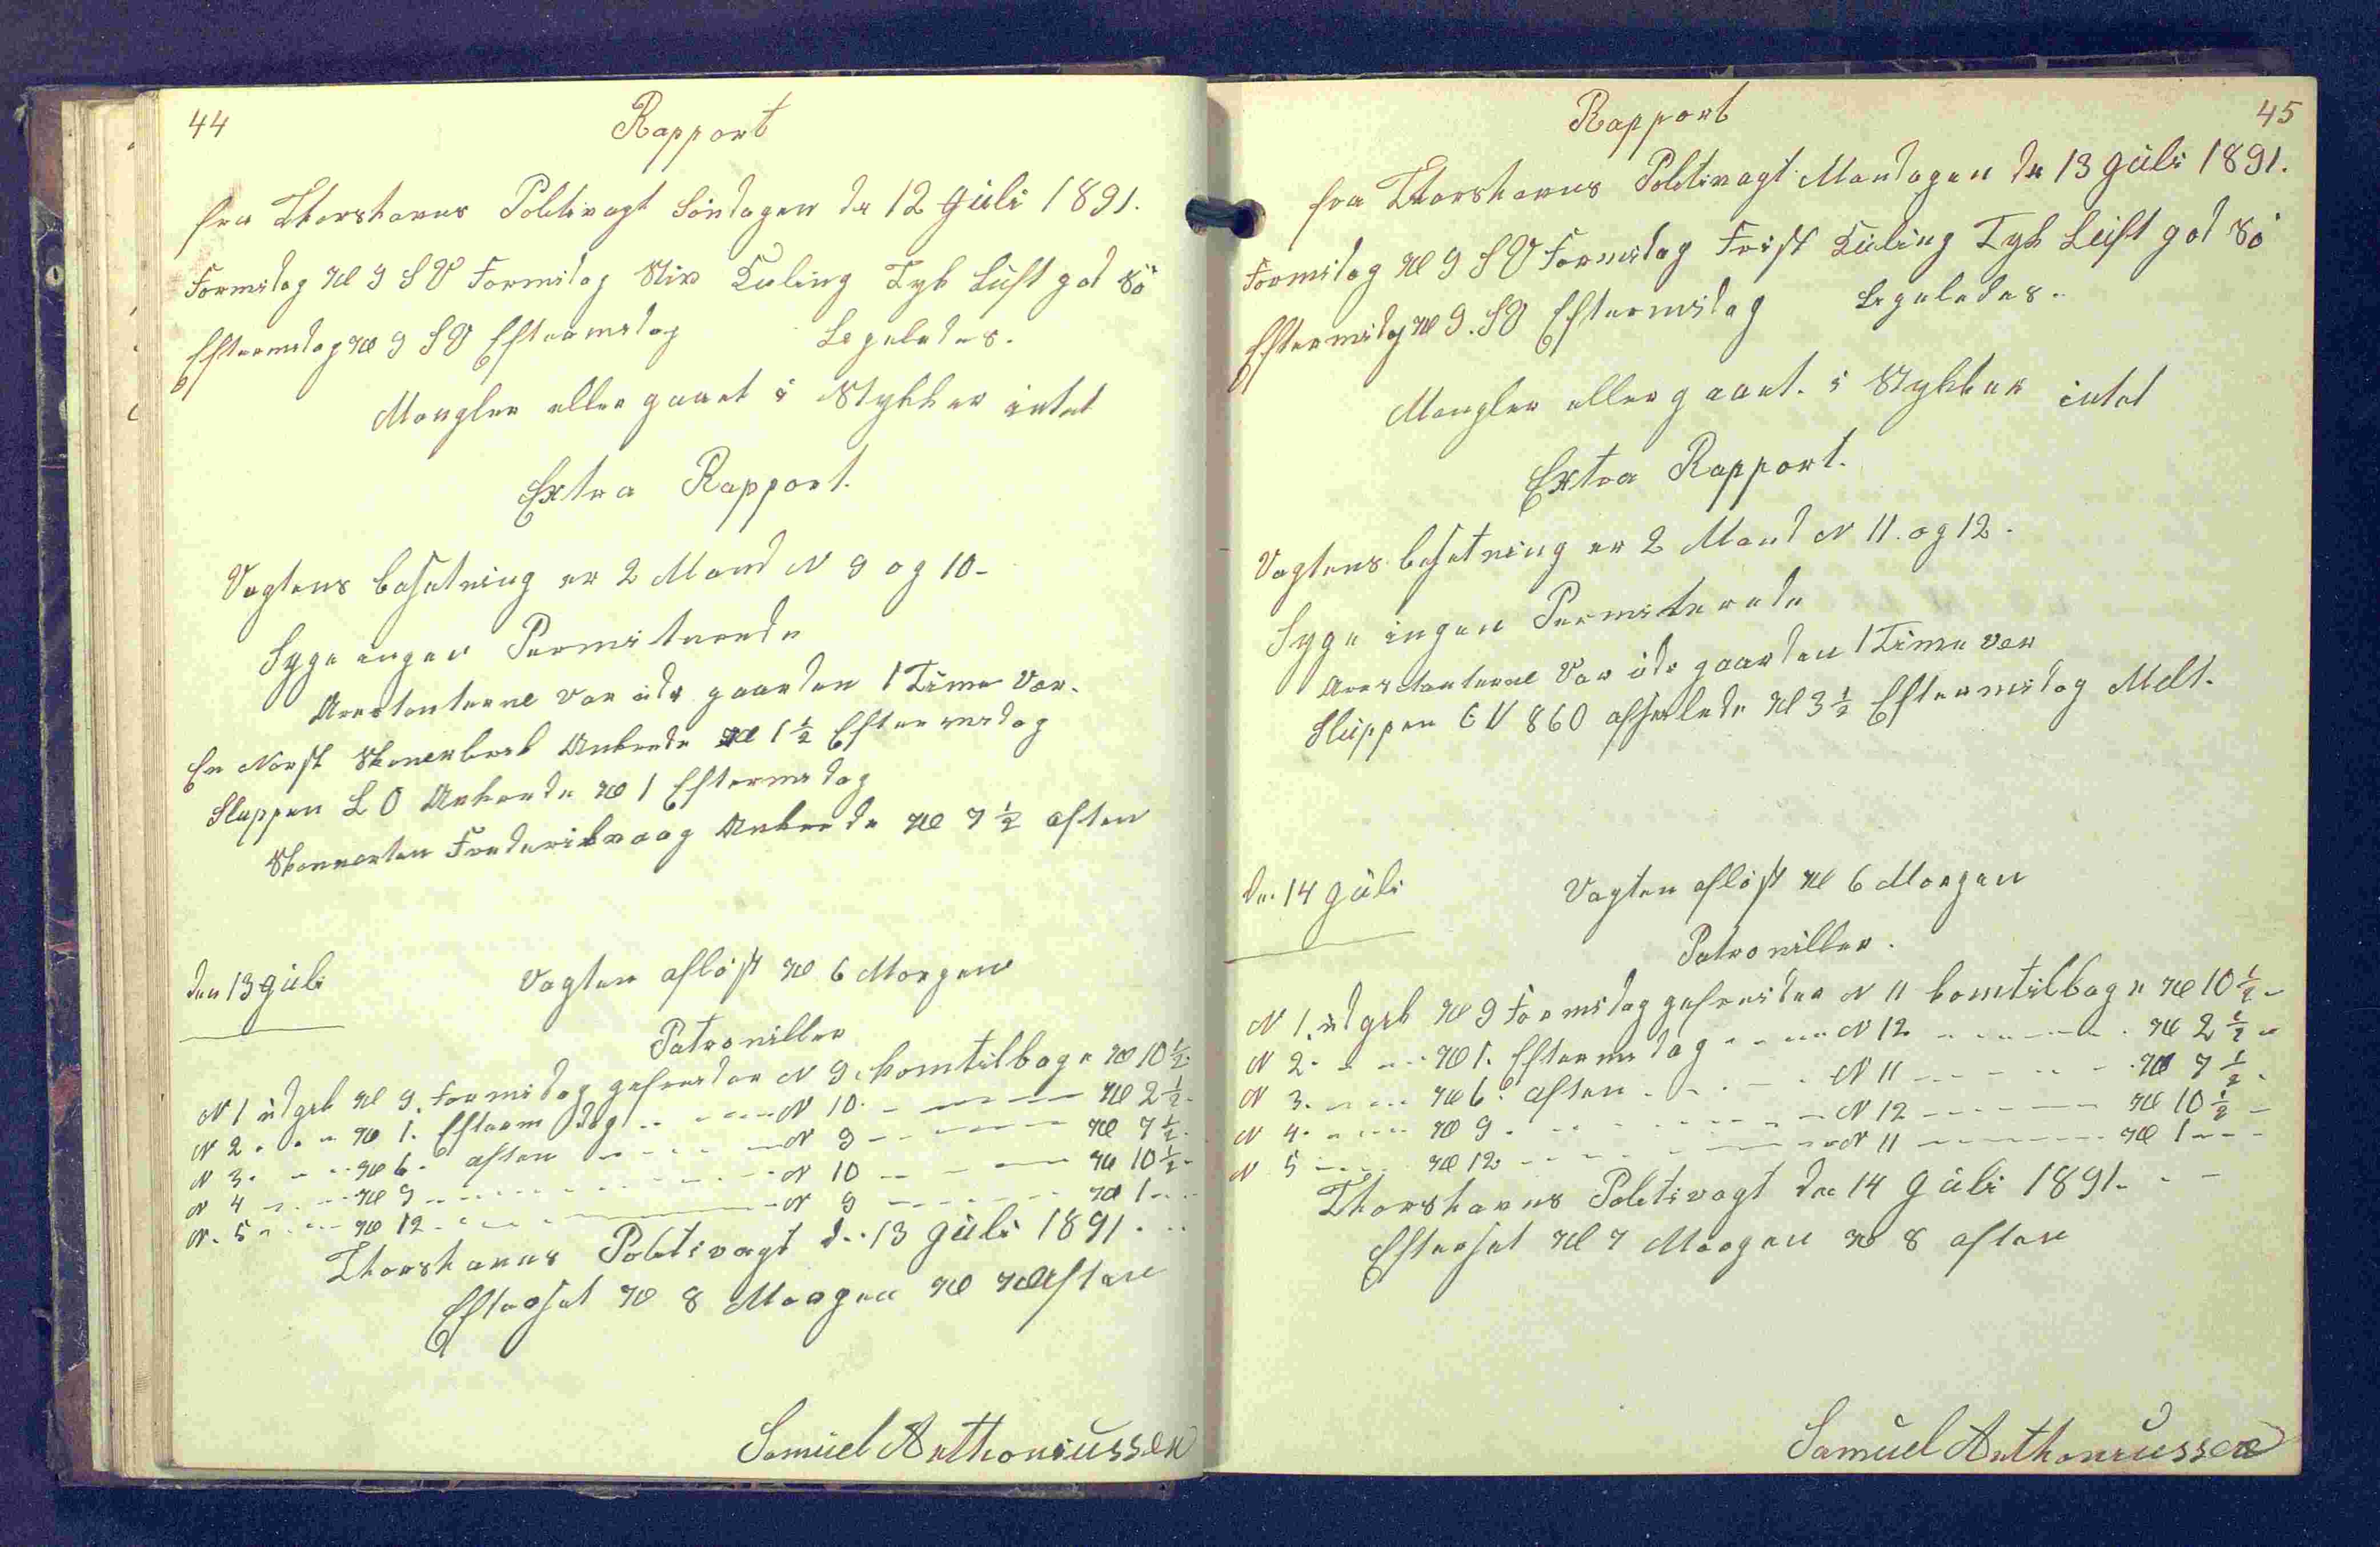 44
Rapport
fra Thorshavns Politivagt Söndagen de 12 Juli 1891.
Formidag Kl 9 SV Formidag Stiv Kuling Tyk Luft god Sö
Eftermidag Kl 9 SV Eftermidag Ligeledes.
Mangler eller gaaet i Stykker intet
Extra Rapport.
Vagtens besetning er 2 Mand N 9 og 10-
Syge ingen Permiterede
Arestanterne var ude gaarden 1 Time Vær.
En Norsk Skonerbrik Ankrede Kl 1½ Eftermidag
Sluppen L O Ankrede Kl 1 Eftermidag
Skonnerten Frederiksvaag Ankrede Kl 7½ aften
den 13 Juli Vagten aflöst Kl 6 Morgen
Patroniller
N 1 udgik Kl 9. Formidag gefreider N 9. komtilbage Kl 10½.
N 2 . . - Kl 1. Eftermidag .. - - - N 10 - - - - Kl 2½-
N 3. - - .. Kl 6. aften - - - - N 9 - - - - Kl 7½.
N 4 - - .. Kl 9 - - - - - - - N 10 - - - - Kl 10½-
N. 5 - . - - Kl 12 - - - - - N 9 - - - - - Kl 1 - . .
Thorshavns Politivagt d.. 13 Juli 1891 . ..
Efterset Kl 8 Morgen Kl Kl Aften
Samuel Anthoniussen
45
Rapport
fra Thorshavns Politivagt Mandagen de 13 Juli 1891.
Formidag Kl 9 SV Formidag Frisk Kuling Tyk Luft god Sö
Eftermidag Kl 9. SV Eftermidag Ligeledes.
Mangler eller gaaet. i Stykker intet
Extra Rapport.
Vagtens besetning er 2 Mand N 11. og 12.
Syge ingen Permiterede
Arestanterne Var ude gaarden 1 Time vær
Sluppen 860 afseilede Kl 3½ Eftermidag Mdlt.
den 14 Juli Vagten aflöst Kl 6 Morgen
Patroniller.
N 1. udgik Kl 9 Formidag gefreider N 11 komtilbage Kl 10½-
N 2. - - .. Kl 1. Eftermidag - - - - N 12 - - - - - . Kl 2½ -
N 3. - - - Kl 6. aften . - . - . N 11 - - - .. - . Kl 7½ .
N 4. - - - Kl 9 . - - - - - - N 12 - - - - - Kl 10½ -
N 5 - - - . Kl 12 - - - - - - N 11 - - - - - Kl 1 - - -
Thorshavns Politivagt de 14 Juli 1891. . -
Efterset Kl 7 Morgen Kl 8 aften
Samuel Anthoniussen